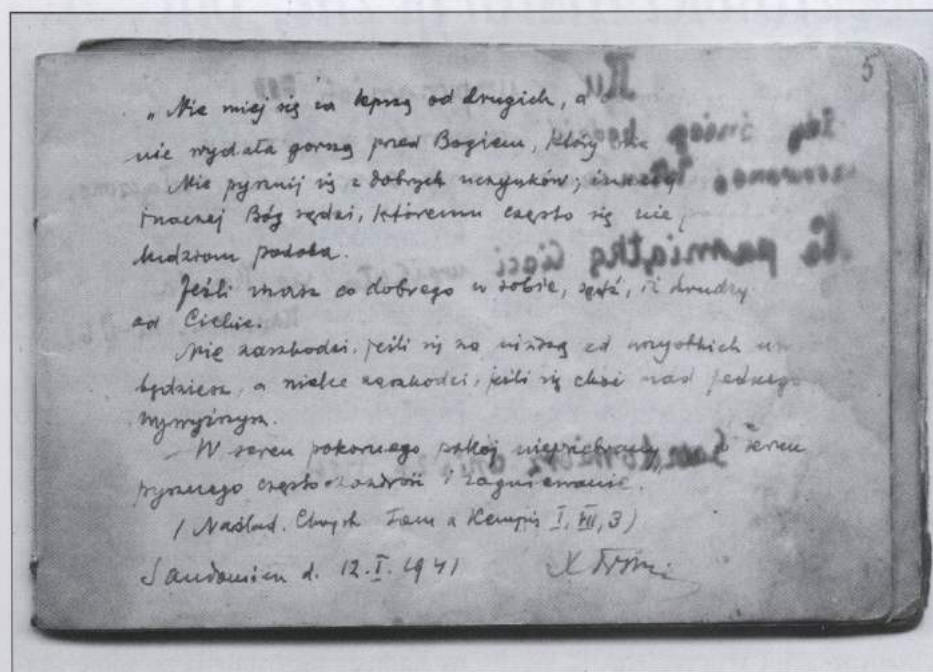 5
„Nie miej się za lepszą od drugich, a
nie wydała gorszą przed Bogiem, który
Nie pysznij się z dobrych uczynków,
inaczej Bóg sądzi, któremu często się nie
ludziom podoba.
Jeśli masz co dobrego w sobie, sądź, iż drudzy
od Ciebie.
Nie zaszkodzi, jeśli się za niższą od wszystkich
będziesz, a wielce zaszkodzi, jeśli się choć nad jednego
wywyższysz.
W sercu pokornego pokój nieprzebrany, sercu
pysznego często zazdrość i zagniewanie.
/ Naślad. Chryst. Tom a Kempis I, VII, 3)
Sandomierz d. 12.I.1941